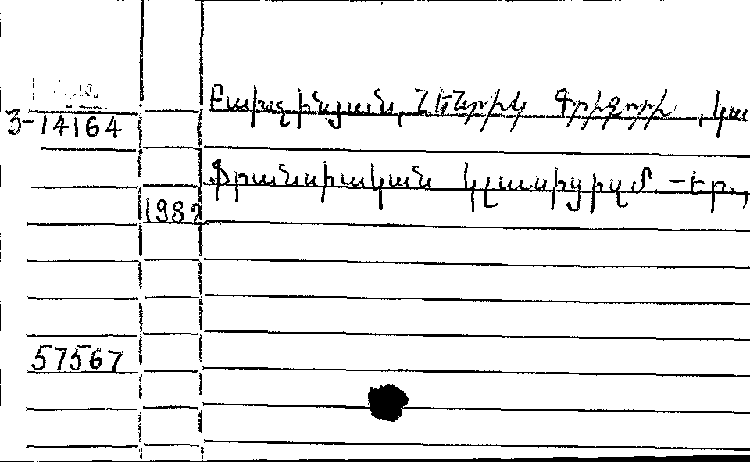 3-14164
Բախչինյան, Հենրիկ Գրիգորի, կա
Ֆրանսիական կլասիցիզմ.-Եր.,
198
57567